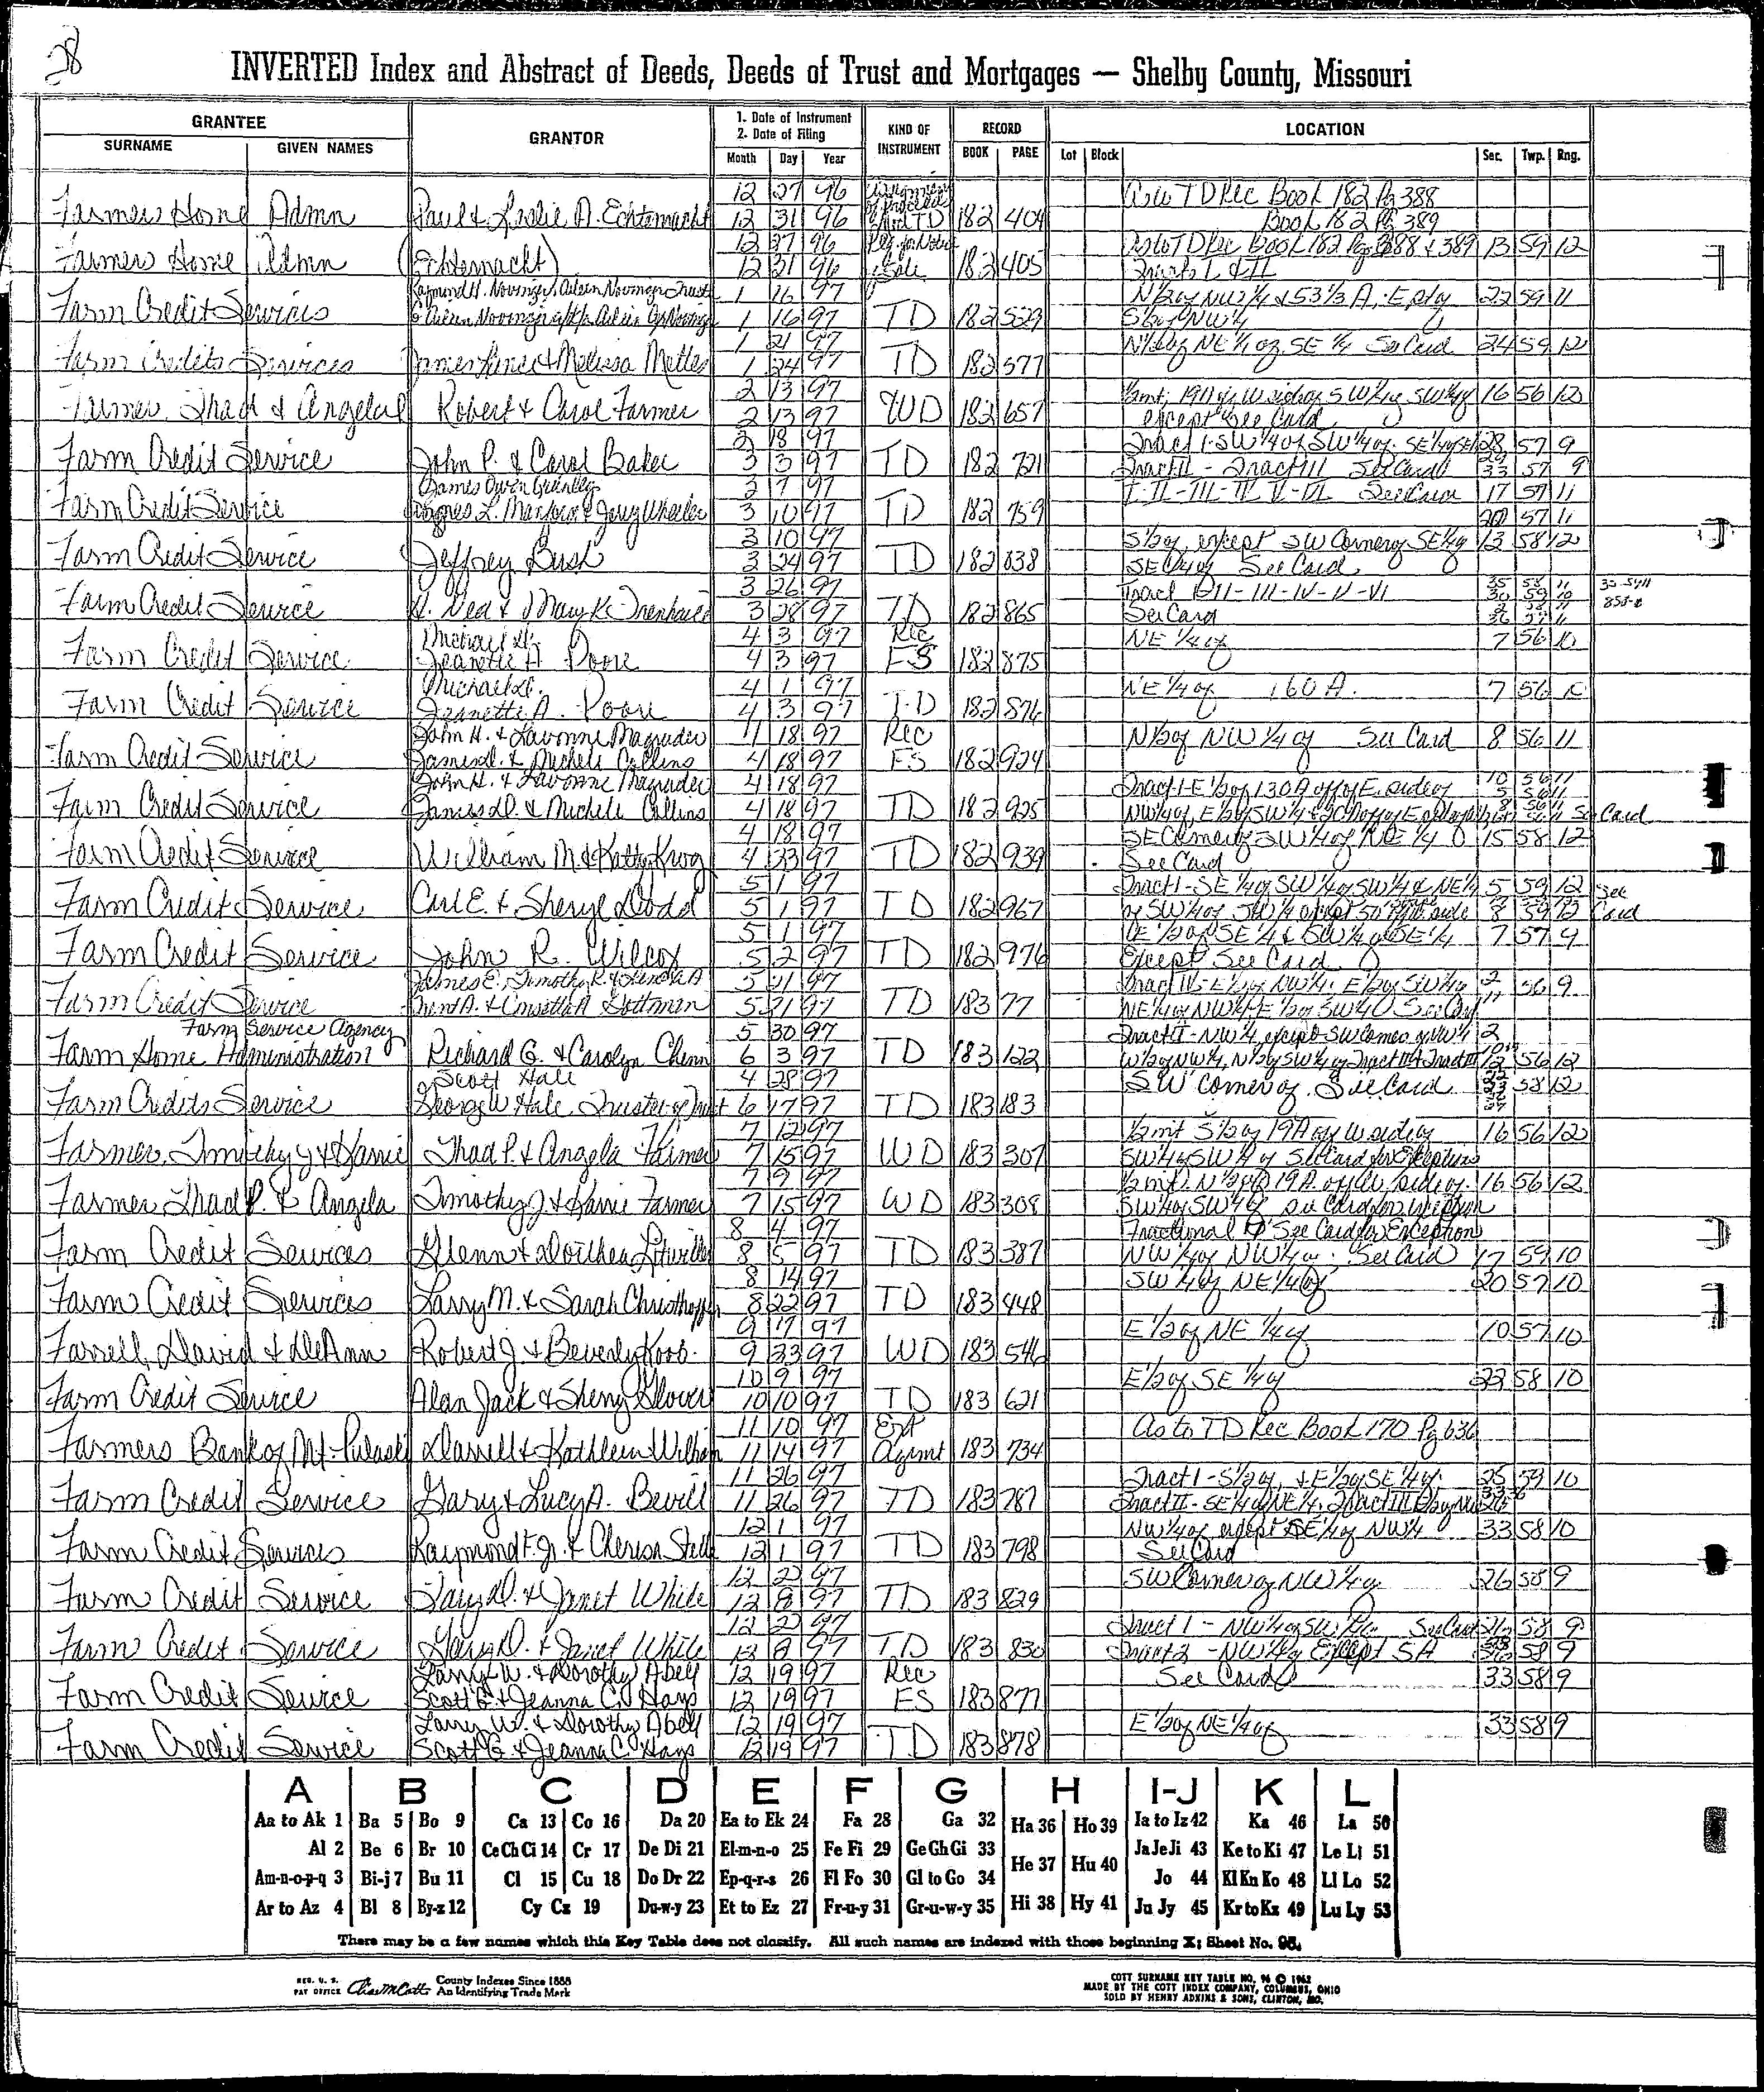 28
INVERTED Index and Abstract of Deeds, Deeds of Trust and Mortgages — Shelby County, Missouri
GRANTEE GRANTOR 1. Date of Instrument 2. Date of Filing KIND OF INSTRUMENT RECORD LOCATION
SURNAME GIVEN NAMES Month Day Year BOOK PAGE Lot Block Sec. Twp. Rng.
12 27 96 TD Rec Book 182 Pg 388
Farmers Home Admn Paul & Leslie A. Echternacht 12 31 96 TD 182 404 Book 182 Pg 389
12 27 96 Req. for Notice As to TD Rec Book 182 Pg 388 & 389 13 59 12
Farmers Home Admn (Echternacht) 12 31 96 Sale 182 405 Tracts I & II
Raymond H. Novinger, Aileen Novinger Trust 1 16 97 N 1/2 of NW 1/4 & 53 1/3 A, E pt of 22 59 11
Farm Credit Services 1 16 97 TD 182 529 S 1/2 of NW 1/4
1 21 97 N 1/2 of NE 1/4 of SE 1/4 See Card 24 59 12
Farm Credits Services James Lance & Melissa Mettes 1 24 97 TD 182 577
2 13 97 19 A of W side of SW 1/4 of SW 1/4 of 16 56 12
Farmer, Thad & Angela Robert & Carol Farmer 2 13 97 WD 182 657 except See Card
2 18 97 Tract I-SW 1/4 of SW 1/4 of SE 1/4 of SE 1/4 28 57 9
Farm Credit Service John P. & Carol Baker 3 3 97 TD 182 721 Tract II - Tract III See Card 33 57 9
James Owen 3 7 97 I-II-III-IV V-VI See Card 17 57 11
Farm Credit Service Jerry Wheeler 3 10 97 TD 182 759 20 57 11
3 10 97 S 1/2 of, except SW Corner of SE 1/4 of 13 58 12
Farm Credit Service Jeffrey Bush 3 24 97 TD 182 838 SE 1/4 of See Card
3 26 97 Tract I-II-III-IV-V-VI
Farm Credit Service H. Ned & Mary K. 3 28 97 TD 182 865 See Card
Michael D. 4 3 97 Rec NE 1/4 of 7 56 10
Farm Credit Service Jeanette A. Poore 4 3 97 FS 182 875
Michael D. 4 1 97 NE 1/4 of 160 A. 7 56 10
Farm Credit Service Jeanette A. Poore 4 3 97 T.D 182 876
John H. & Lavonne Magruder 4 18 97 Rec N 1/2 of NW 1/4 of See Card 8 56 11
Farm Credit Service James D. & Michele Collins 4 18 97 FS 182 924
John H. & Lavonne Magruder 4 18 97 Tract I-E 1/2 of 130 A off of E. side of
Farm Credit Service James D. & Michele Collins 4 18 97 TD 182 925 NW 1/4 of, E 1/2 of SW 1/4 See Card
4 18 97 SE Corner of SW 1/4 of NE 1/4 of 15 58 12
Farm Credit Service William M & Kathy Krog 4 23 97 TD 182 939 See Card
5 1 97 Tract I - SE 1/4 of SW 1/4 of SW 1/4 & NE 1/4 5 59 12 See
Farm Credit Service Carl E. & Sheryl Dodd 5 1 97 TD 182 967 of SW 1/4 of SW 1/4 except 50' side 8 59 12 Card
5 1 97 E 1/2 of SE 1/4 & SW 1/4 of SE 1/4 7 57 9
Farm Credit Service John R. Wilcox 5 2 97 TD 182 976 Except See Card
James E., Timothy R. & Linda A 5 21 97 E 1/2 of NW 1/4, E 1/2 of SW 1/4 of 2 56 9
Farm Credit Service Trent A. & 5 21 97 TD 183 77 NE 1/4 of NW 1/4, E 1/2 of SW 1/4 See Card
Farm Service Agency 5 30 97 Tract I - NW 1/4 except SW Corner of NW 1/4 2
Farm Home Administration Richard G. & Carolyn Chinn 6 3 97 TD 183 122 W 1/2 of NW 1/4, N 1/2 of SW 1/4 of Tract II & Tract III 56 12
Scott Hale 4 28 97 SW Corner of See Card 58 12
Farm Credits Service George W Hale, Trustee of Trust 6 17 97 TD 183 183
7 12 97 S 1/2 of 19 A off W side of 16 56 12
Farmer, Timothy J & Karrie Thad P. & Angela Farmer 7 15 97 WD 183 307 SW 1/4 of SW 1/4 of See Card for Exceptions
7 9 97 N 1/2 of 19 A. off W. side of 16 56 12
Farmer Thad P. & Angela Timothy J. & Karrie Farmer 7 15 97 WD 183 308 SW 1/4 of SW 1/4 of See Card for exception
8 4 97 Fractional See Card for Exception
Farm Credit Services Glenn & Dorthea 8 5 97 TD 183 387 NW 1/4 of NW 1/4 of See Card 17 59 10
8 14 97 SW 1/4 of NE 1/4 of 20 57 10
Farm Credit Services Larry M. & Sarah 8 22 97 TD 183 448
9 17 97 E 1/2 of NE 1/4 of 10 57 10
Farrell, David & DeAnn Robert J. & Beverly Koob. 9 23 97 WD 183 546
10 9 97 E 1/2 of SE 1/4 of 23 58 10
Farm Credit Service Alan Jack & Sherry Glover 10 10 97 TD 183 621
11 10 97 Ext As to TD Rec Book 170 Pg 636
Farmers Bank of Mt. Pulaski Darrell & Kathleen 11 14 97 Agmt 183 734
11 26 97 Tract I - S 1/2 of, & E 1/2 of SE 1/4 of 25 59 10
Farm Credit Service Gary & Lucy A. Bevill 11 26 97 TD 183 787 Tract II - SE 1/4 of NE 1/4, Tract III
12 1 97 NW 1/4 of except SE 1/4 of NW 1/4 33 58 10
Farm Credit Services Raymond F. Jr. & Cheresa 12 1 97 TD 183 798 See Card
12 2 97 SW Corner of NW 1/4 of 26 58 9
Farm Credit Service Gary D. & Janet White 12 8 97 TD 183 829
12 2 97 Tract 1 - NW 1/4 of SW See Card 58 9
Farm Credit Service Gary D. & Janet White 12 8 97 TD 183 830 Tract 2 - NW 1/4 of Except 5 A 58 9
Larry W. & Dorothy Abell 12 19 97 Rec See Card 33 58 9
Farm Credit Service Scott G. & Jeanna C. Hays 12 19 97 FS 183 877
Larry W. & Dorothy Abell 12 19 97 E 1/2 of NE 1/4 of 33 58 9
Farm Credit Service Scott G. & Jeanna C. Hays 12 19 97 TD 183 878
A B C D E F G H I-J K L
Aa to Ak 1 Ba 5 Bo 9 Ca 13 Co 16 Da 20 Ea to Ek 24 Fa 28 Ga 32 Ha 36 Ho 39 Ia to Iz 42 Ka 46 La 50
Al 2 Be 6 Br 10 Ce Ch Ci 14 Cr 17 De Di 21 El-m-n-o 25 Fe Fi 29 Ge Gh Gi 33 He 37 Hu 40 Ja Je Ji 43 Ke to Ki 47 Le Li 51
Am-n-o-p-q 3 Bi-j 7 Bu 11 Cl 15 Cu 18 Do Dr 22 Ep-q-r-s 26 Fl Fo 30 Gl to Go 34 Jo 44 Kl Kn Ko 48 Ll Lo 52
Ar to Az 4 Bl 8 By-z 12 Cy Cz 19 Du-w-y 23 Et to Ez 27 Fr-u-y 31 Gr-u-w-y 35 Hi 38 Hy 41 Ju Jy 45 Kr to Kz 49 Lu Ly 53
There may be a few names which this Key Table does not classify. All such names are indexed with those beginning X; Sheet No. 95.
REG. U. S. PAT OFFICE County Indexes Since 1888 An Identifying Trade Mark
COTT SURNAME KEY TABLE NO. 96 © 1962
MADE BY THE COTT INDEX COMPANY, COLUMBUS, OHIO
SOLD BY HENRY ADKINS & SONS, CLINTON, MO.